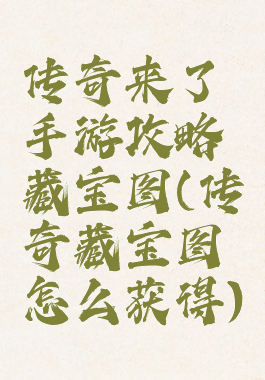 传奇来了
手游攻略
藏宝图(传
奇藏宝图
怎么获得)